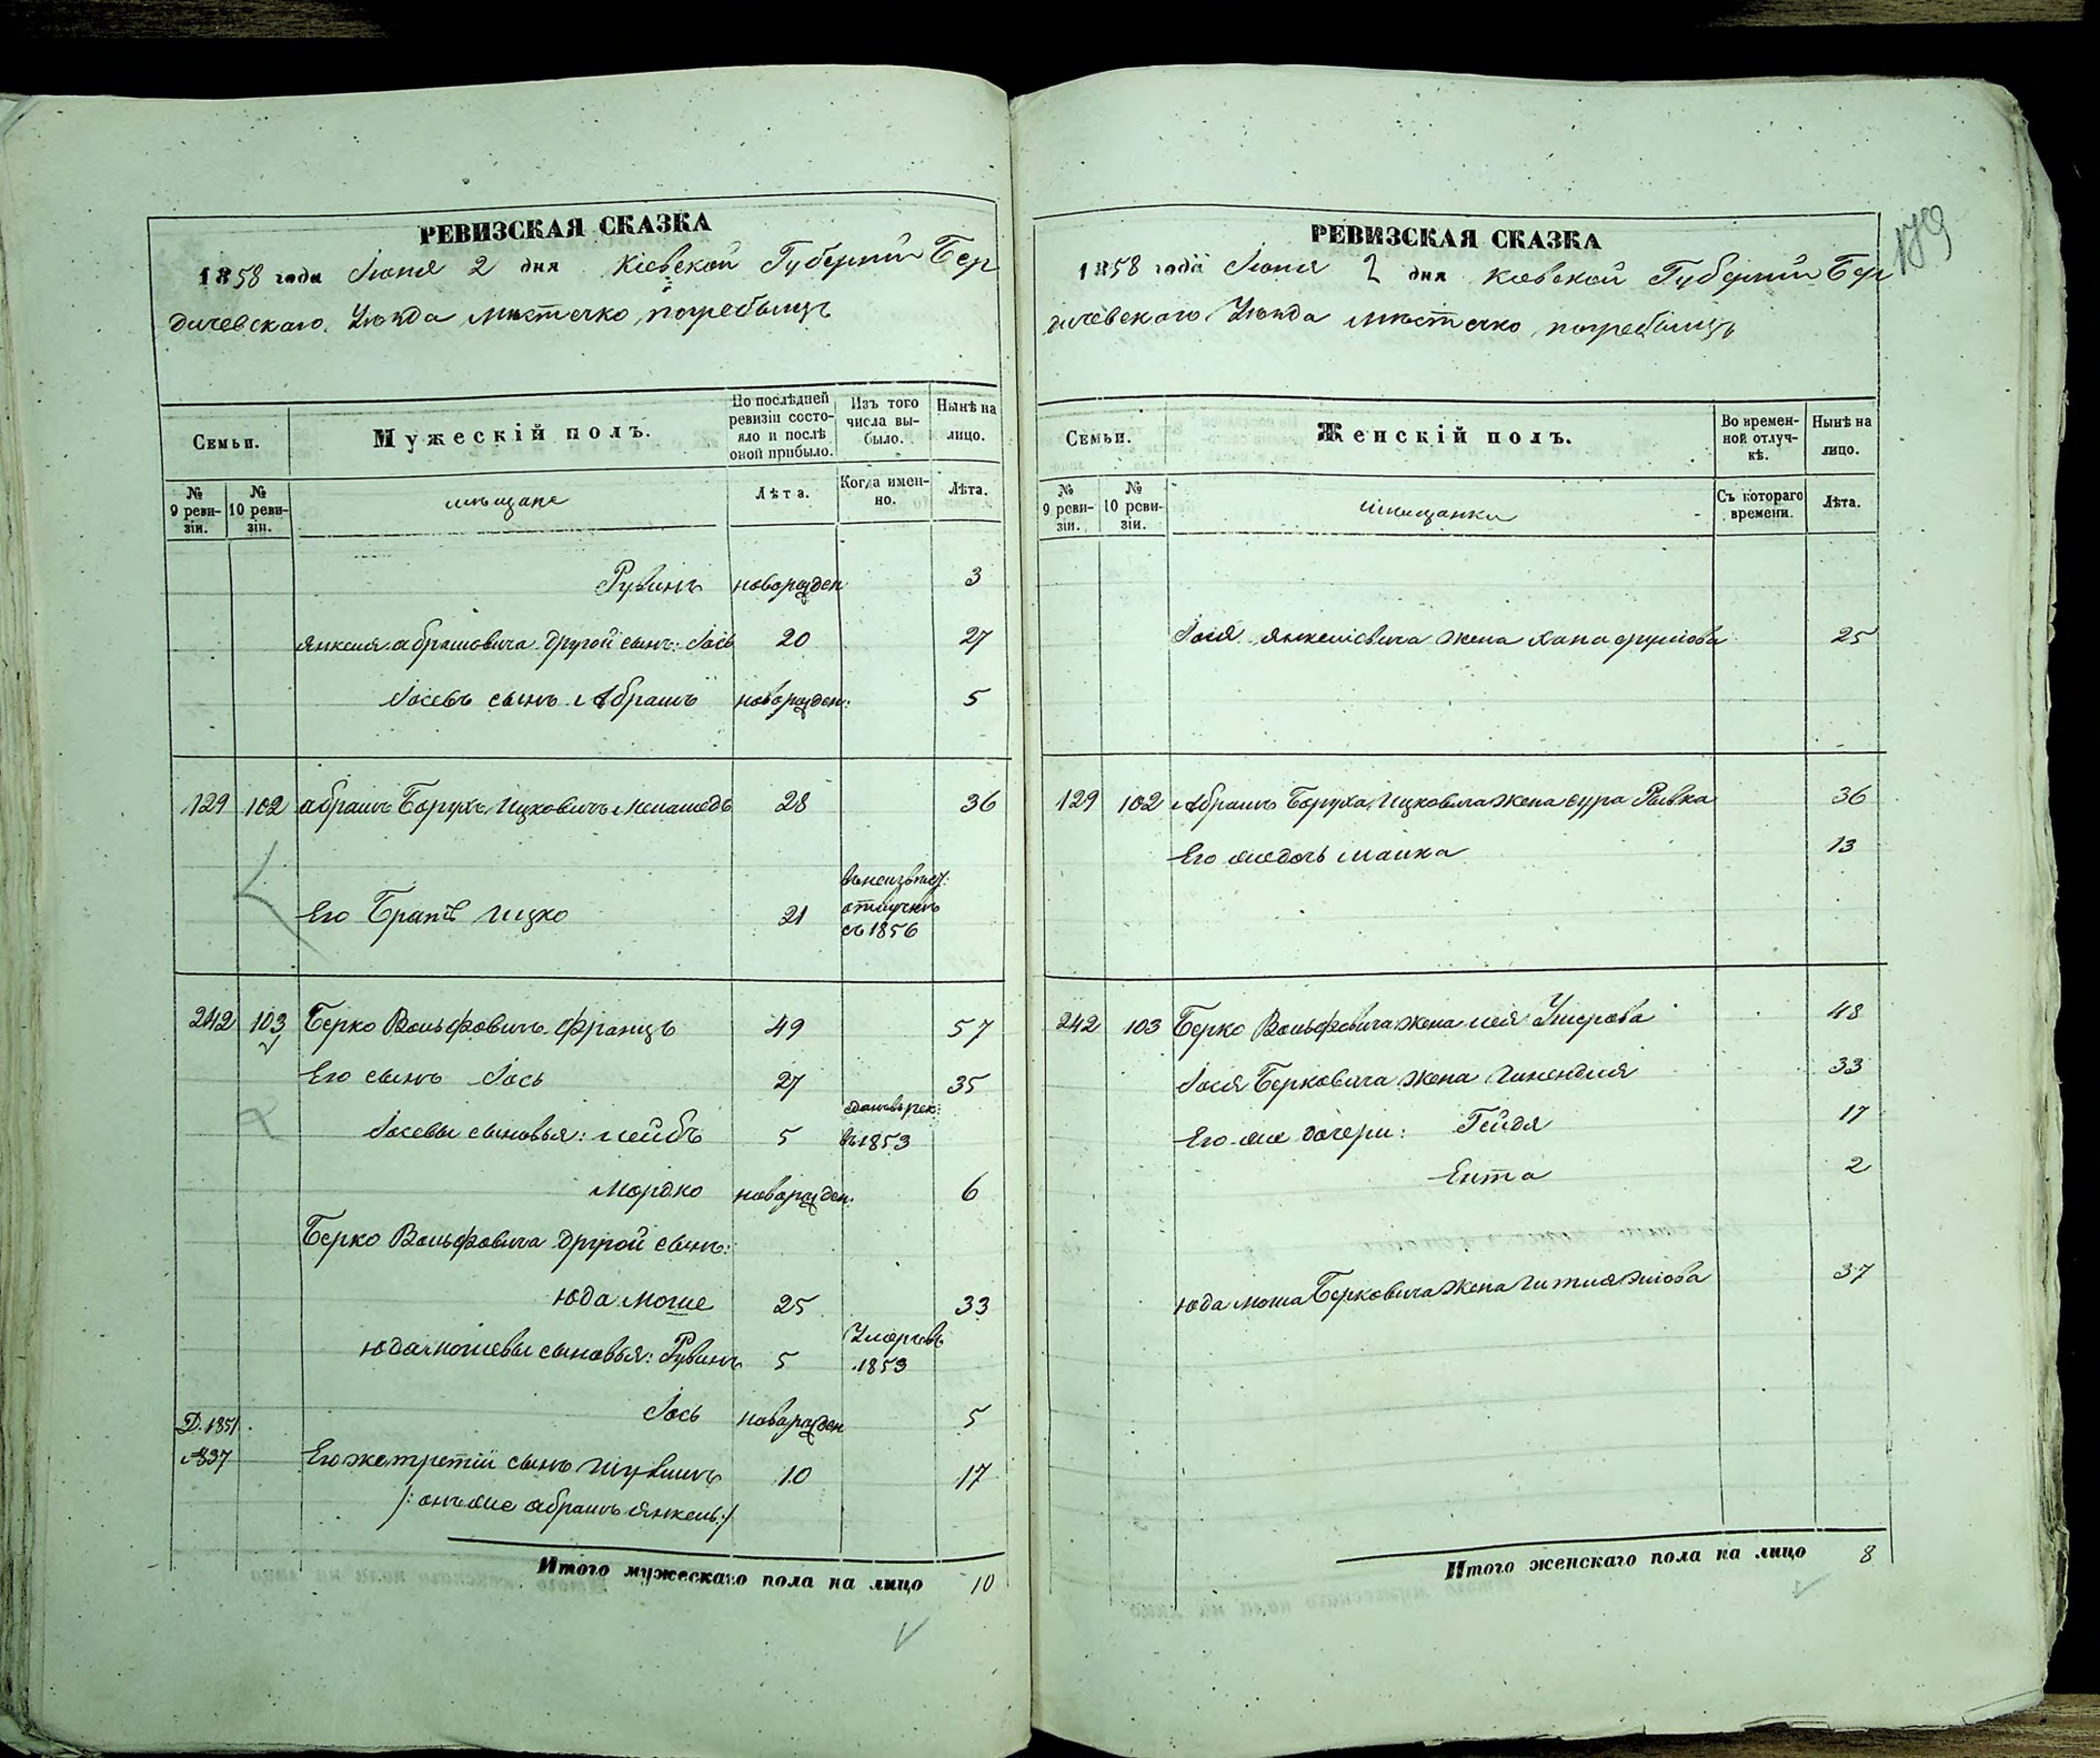 РЕВИЗСКАЯ СКАЗКА
1858 года Іюня 2 дня Кіевской Губерніи Бер
дичевскаго Уѣзда мѣстечко погребыщъ
Семьи.
Мужескій полъ.
По послѣдней ревизіи состояло и послѣ оной прибыло.
Изъ того числа выбыло.
Нынѣ на лицо.
№ 9 ревизіи.
№ 10 ревизіи.
мѣщане
Лѣта.
Когда именно.
Лѣта.
Рувинъ новорожден 3
Янкеля Абрамовича другой сынъ: Іось 20 27
Іосевъ сынъ Абрамъ новорожден: 5
129 102 Абрамъ Борухъ Ицковичъ 28 36
Его Братъ Ицко 21
отлучкѣ
съ 1856
242 103 Берко Вольфовичъ Францъ 49 57
Его сынъ Іось 27 35
Іосевы сыновья: Лейбъ 5 въ 1853
Мордко новорожден: 6
Берко Вольфовича другой сынъ:
Юда Моше 25 33
Юда Мошевы сыновья: Рувинъ 5 Умеръ въ 1853
Іось новорожден 5
Д. 1851
№ 337 Его же третій сынъ 10 17
/: онъ же Абрамъ Янкель :/
Итого мужескаго пола на лицо 10
179
РЕВИЗСКАЯ СКАЗКА
1858 года Іюня 2 дня Кіевской Губерніи Бер
дичевскаго Уѣзда мѣстечко погребыщъ
Семьи.
Женскій полъ.
Во временной отлучкѣ.
Нынѣ на лицо.
№ 9 ревизіи.
№ 10 ревизіи.
мѣщанки
Съ котораго времени.
Лѣта.
Іося Янкелевича жена Хана 25
129 102 Абрамъ Боруха Ицковича жена Сура Ривка 36
Его же дочь Малка 13
242 103 Берко Вольфовича жена Лея Ушерова 48
Іося Берковича жена 33
Его же дочери: Гейдя 17
Ента 2
Юда Моша Берковича жена 37
Итого женскаго пола на лицо 8